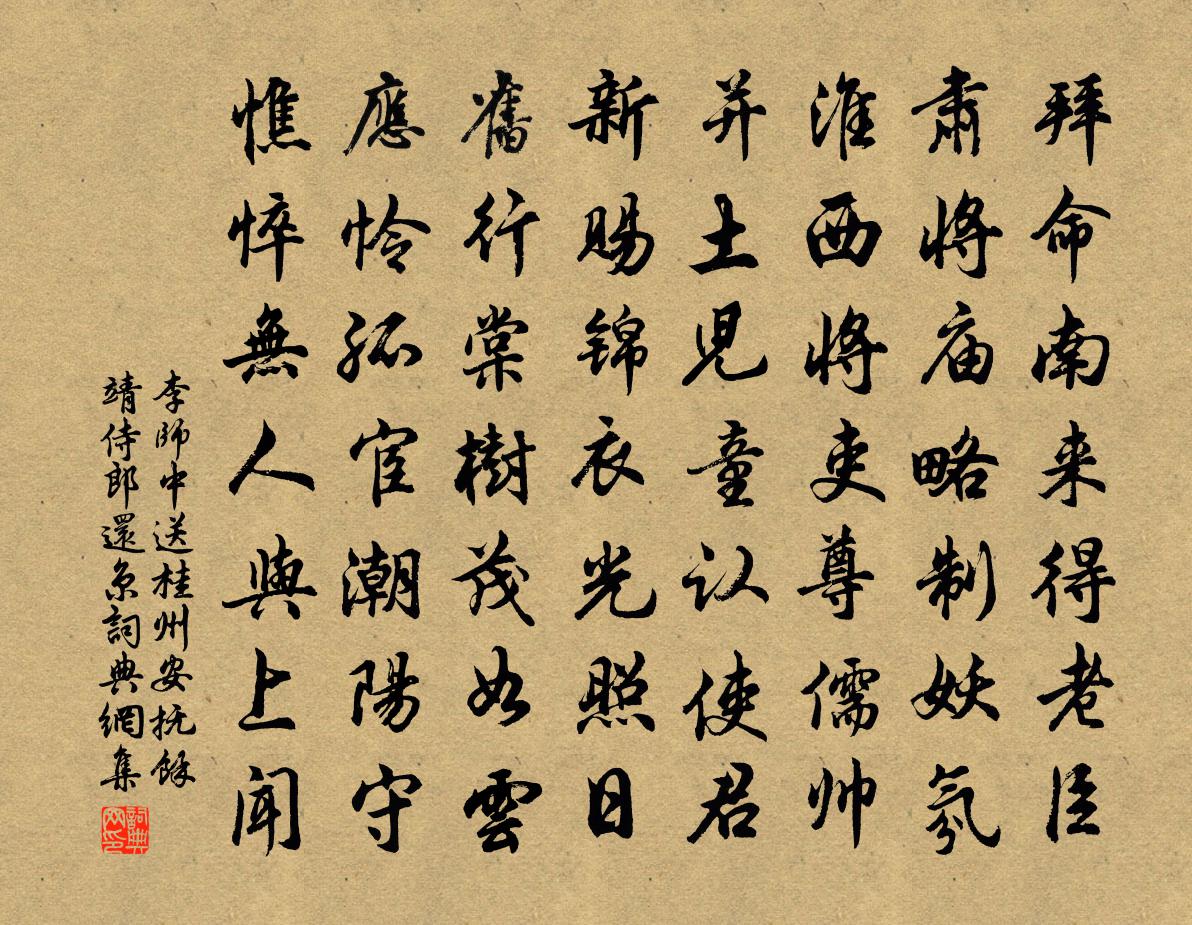 拜命南来得老臣
肃將庙略制妖氛
淮西將吏尊儒帅
并土児童认使君
新赐锦衣光照日
舊行棠樹茂如雲
應怜孤宦潮陽守
憔悴無人與上闻
李師中送桂州安抚餘
靖侍郎還京詞典網集
詞典网印